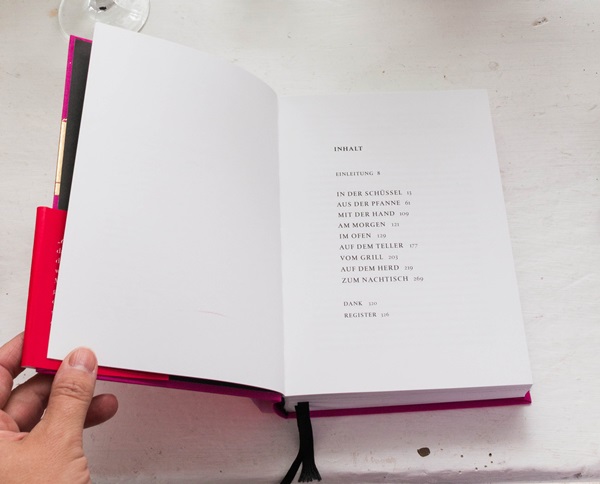 INHALT
EINLEITUNG 8
IN DER SCHÜSSEL 13
AUS DER PFANNE 61
MIT DER HAND 109
AM MORGEN 121
IM OFEN 129
AUF DEM TELLER 177
VOM GRILL 203
AUF DEM HERD 219
ZUM NACHTISCH 269
DANK 320
REGISTER 326